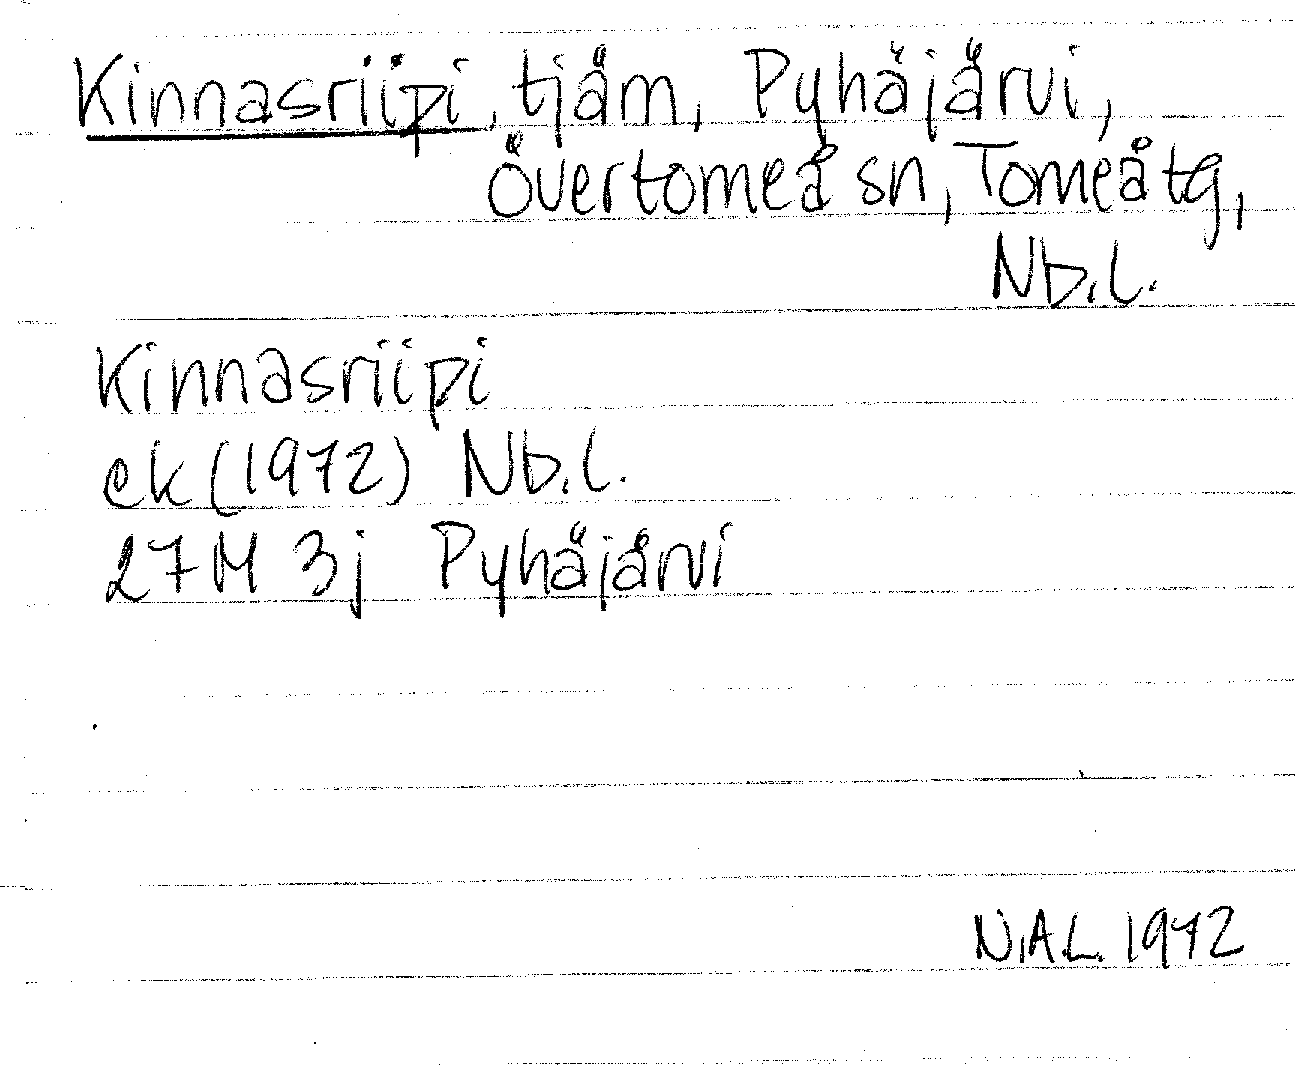 Kinnasriipi, tjäm, Pyhäjärvi,
Övertorneå sn, Torneå tg,
Nb.l.
Kinnasriipi
ek (1972) Nb.l.
27M 3j Pyhäjärvi
N.A.L. 1972